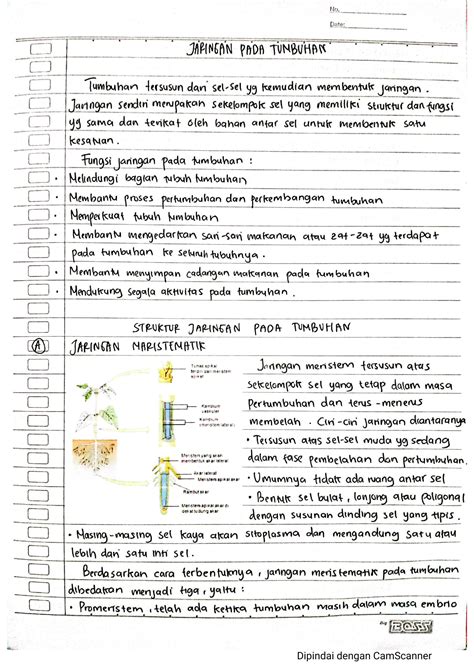 No.
Date:
JARINGAN PADA TUMBUHAN
Tumbuhan tersusun dari sel-sel yg kemudian membentuk jaringan.
Jaringan sendiri merupakan sekelompok sel yang memiliki struktur dan fungsi
yg sama dan terikat oleh bahan antar sel untuk membentuk satu
kesatuan.
Fungsi jaringan pada tumbuhan :
• Melindungi bagian tubuh tumbuhan
• Membantu proses pertumbuhan dan perkembangan tumbuhan
• Memperkuat tubuh tumbuhan
• Membantu mengedarkan sari-sari makanan atau zat-zat yg terdapat
pada tumbuhan ke seluruh tubuhnya.
• Membantu menyimpan cadangan makanan pada tumbuhan
• Mendukung segala aktivitas pada tumbuhan.
STRUKTUR JARINGAN PADA TUMBUHAN
A JARINGAN MARISTEMATIK
Tunas apikal
terdiri dari meristem
apikal
Kambium
vaskuler
Kambium
(meristem lateral)
Meristem yang akan
membentuk akar lateral
Akar lateral
Meristem apikal akar
Rambut akar
Meristem apikal akar di
dekat tudung akar
Jaringan meristem tersusun atas
sekelompok sel yang tetap dalam masa
Pertumbuhan dan terus-menerus
membelah. Ciri-ciri jaringan diantaranya
• Tersusun atas sel-sel muda yg sedang
dalam fase pembelahan dan pertumbuhan.
• Umumnya tidak ada ruang antar sel
• Bentuk sel bulat, lonjong atau poligonal
dengan susunan dinding sel yang tipis.
• Masing-masing sel kaya akan sitoplasma dan mengandung satu atau
lebih dari satu inti sel.
Berdasarkan cara terbentuknya, jaringan meristematik pada tumbuhan
dibedakan menjadi tiga, yaitu :
• Promeristem, telah ada ketika tumbuhan masih dalam masa embrio
Big BOSS
Dipindai dengan CamScanner